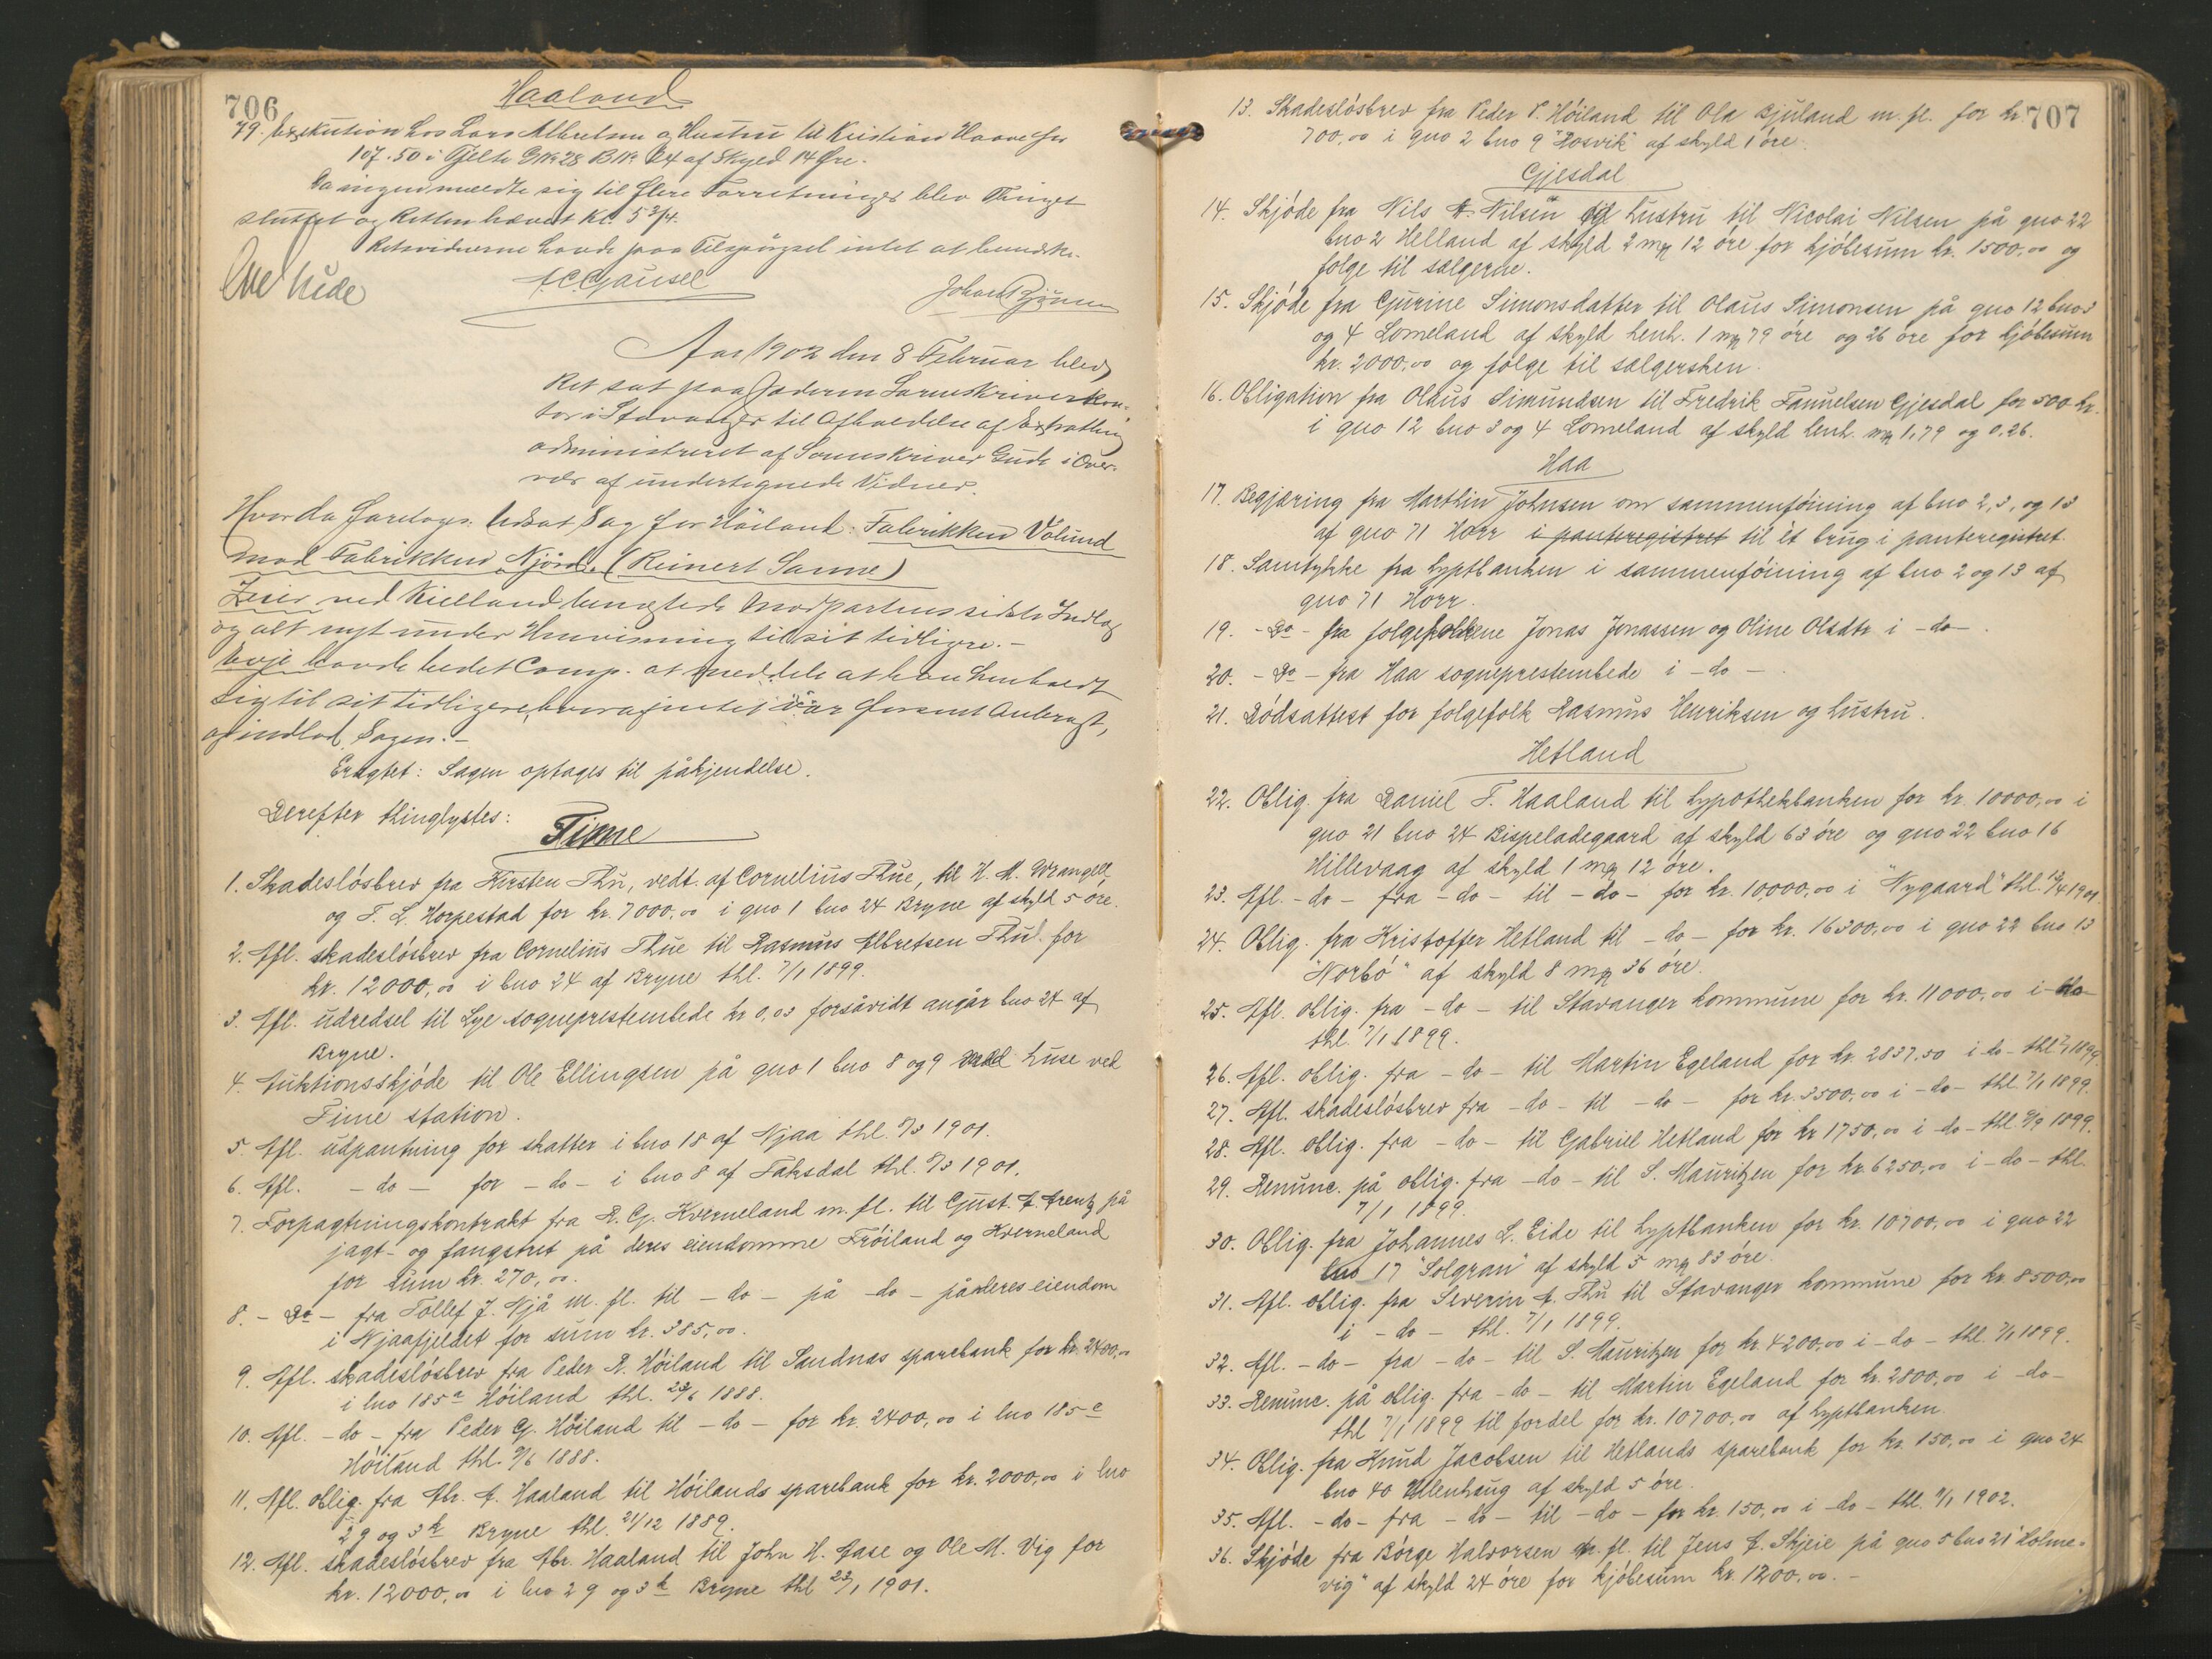 706
Haaland
79. Exekution hos Lars Albretsen og Hustru til Kristian Haave for
107.50 i Tjelte GNo 28 BNo 24 af Skyld 14 Øre.
Da ingen meldte sig til flere Forretninger blev Thinget
sluttet og Retten hævet Kl. 5 3/4.
Retsvidnerne havde paa Tilspørgsel intet at bemærke.
A.C. Gausel
Johan
Aar 1902 den 8 Februar blev
Ret sat paa Jæderen Sorenskriverkon-
tor i Stavanger til Afholdelse af Extratthing
administreret af Sorenskriver Gude i Over-
vær af undertegnede Vidner.
Hvorda foretoges: Udsat Sag for Höiland: Fabrikken Vølund
mod Fabrikken "Njörd" (Reinert Sanne)
ved Kielland benegtede Modpartens sidste Indlæg
og alt nyt under Henvisning til sit tidligere.-
havde bedet Comp. at meddele at han henholdt
sig til sit tidligere, hvorefter intet var forsent Anbragt,
og indlod Sagen.-
Eragtet: Sagen optages til påkjendelse.
Derefter thinglystes:
Time
1. Skadesløsbrev fra Kirsten Thu, vedt. af Cornelius Thue, til H. M. Wrangell
og T. L. Horpestad for kr. 7000,00 i gno 1 bno 24 Bryne af skyld 5 øre.
2. Afl. skadesløsbrev fra Cornelius Thue til Rasmus Albretsen Thu for
kr. 12000,00 i bno 24 af Bryne thl. 7/1 1899.
3. Afl. udredsel til Lye sogneprestembede kr 0,03 forsåvidt angår bno 24 af
Bryne.
4. Auktionsskjøde til Ole Ellingsen på gno 1 bno 8 og 9 med huse ved
Time station.
5. Afl. udpantning for skatter i bno 18 af Njaa thl. 5/3 1901.
6. Afl. - do - for - do - i bno 8 af Taksdal thl. 5/3 1901.
7. Forpagtningskontrakt fra R. G. Kverneland m. fl. til Gust. A. Arentz på
jagt- og fangstret på deres eiendomme Frøiland og Kverneland
for sum kr. 270,00.
8. - Do - fra Tollef J. Njå m. fl. til - do - på - do - på deres eiendom
i Njaafjeldet for sum kr. 385,00.
9. Afl. skadesløsbrev fra Peder R. Høiland til Sandnæs sparebank for kr. 2400,00
i lno 185a Høiland thl. 23/6 1888.
10. Afl. - do - fra Peder G. Høiland til - do - for kr. 2400,00 i lno 185c
Høiland thl. 9/6 1888.
11. Afl. oblig. fra Abr. A. Haaland til Høilands sparebank for kr. 2000,00 i lno
29 og 3 k Bryne thl. 21/12 1889.
12. Afl. skadesløsbrev fra Abr. Haaland til John H. Aase og Ole M. Vig for
kr. 12000,00 i lno 29 og 3 k Bryne thl 23/1 1901.
707
13. Skadesløsbrev fra Peder P. Høiland til Ola Bjuland m. fl. for kr
700,00 i gno 2 bno 9 "Rosvik" af skyld 1 øre.
Gjesdal
14. Skjøde fra Nils N. Nilsen og hustru til Nicolai Nilsen på gno 22
bno 2 Helland af skyld 2 mrk 12 øre for kjøbesum kr. 1500,00 og
følge til sælgerne.
15. Skjøde fra Gurine Simonsdatter til Olaus Simonsen på gno 12 bno 3
og 4 Lomeland af skyld henh. 1 mrk 79 øre og 26 øre for kjøbesum
kr. 2000,00 og følge til sælgersken.
16. Obligation fra Olaus Simundsen til Fredrik Samuelsen Gjesdal for 500 kr.
i gno 12 bno 3 og 4 Lomeland af skyld henh. mrk 1,79 og 0.26.
Haa
17. Begjæring fra Marthin Johnsen om sammenføining af bno 2, 3, og 13
af gno 71 Horr i panteregistret til ét brug i panteregistret.
18. Samtykke fra hyptbanken i sammenføining af bno 2 og 13 af
gno 71 Horr.
19. - Do - fra følgefolkene Jonas Jonassen og Oline Olsdtr i - do -.
20. - Do - fra Haa sogneprestembede i - do -
21. Dødsattest for følgefolk Rasmus Henriksen og hustru.
Hetland
22. Oblig. fra Daniel T. Haaland til hypothekbanken for kr. 10000,00 i
gno 21 bno 24 Bispeladegaard af skyld 63 øre og gno 22 bno 16
Hillevaag af skyld 1 mrk 12 øre.
23. Afl. - do - fra - do - til - do - for kr. 10,000,00 i "Nygaard" thl. 13/4 1901.
24. Oblig. fra Kristoffer Hetland til - do - for kr. 16300,00 i gno 22 bno 13
"Norbø" af skyld 8 mrk 36 øre.
25. Afl. oblig. fra - do - til Stavanger kommune for kr. 11000,00 i - do -
thl. 7/1 1899.
26. Afl. oblig. fra - do - til Martin Egeland for kr. 2837.50 i - do - thl 7/1 1899.
27. Afl. skadesløsbrev fra - do - til - do - for kr. 3500,00 i - do - thl. 7/1 1899.
28. Afl. oblig. fra - do - til Gabriel Hetland for kr 1750,00 i - do - thl. 9/9 1899.
29. Renunc. på oblig. fra - do - til S. Mauritzen for kr. 6250,00 i - do - thl.
7/1 1899.
30. Oblig. fra Johannes L. Eide til hyptbanken for kr. 10700,00 i gno 22
bno 17 "Solgran" af skyld 5 mrk 83 øre.
31. Afl. oblig. fra Severin A. Thu til Stavanger kommune for kr. 8500,00
i - do - thl. 7/1 1899.
32. Afl. - do - fra - do - til S. Mauritzen for kr. 4200,00 i - do - thl. 7/1 1899.
33. Renunc. på oblig. fra - do - til Martin Egeland for kr. 2800,00 i - do -
thl 7/1 1899 til fordel for kr. 10700,00 af hyptbanken.
34. Oblig. fra Knud Jacobsen til Hetlands sparebank for kr. 150,00 i gno 24
bno 40 Ullenhaug af skyld 5 øre.
35. Afl. - do - fra - do - til - do - for kr. 150,00 i - do - thl. 9/1 1902.
36. Skjøde fra Børge Halvorsen m. fl. til Jens A. Skjeie på gno 5 bno 21 "Holme-
vig" af skyld 24 øre for kjøbesum kr. 1200,00. -